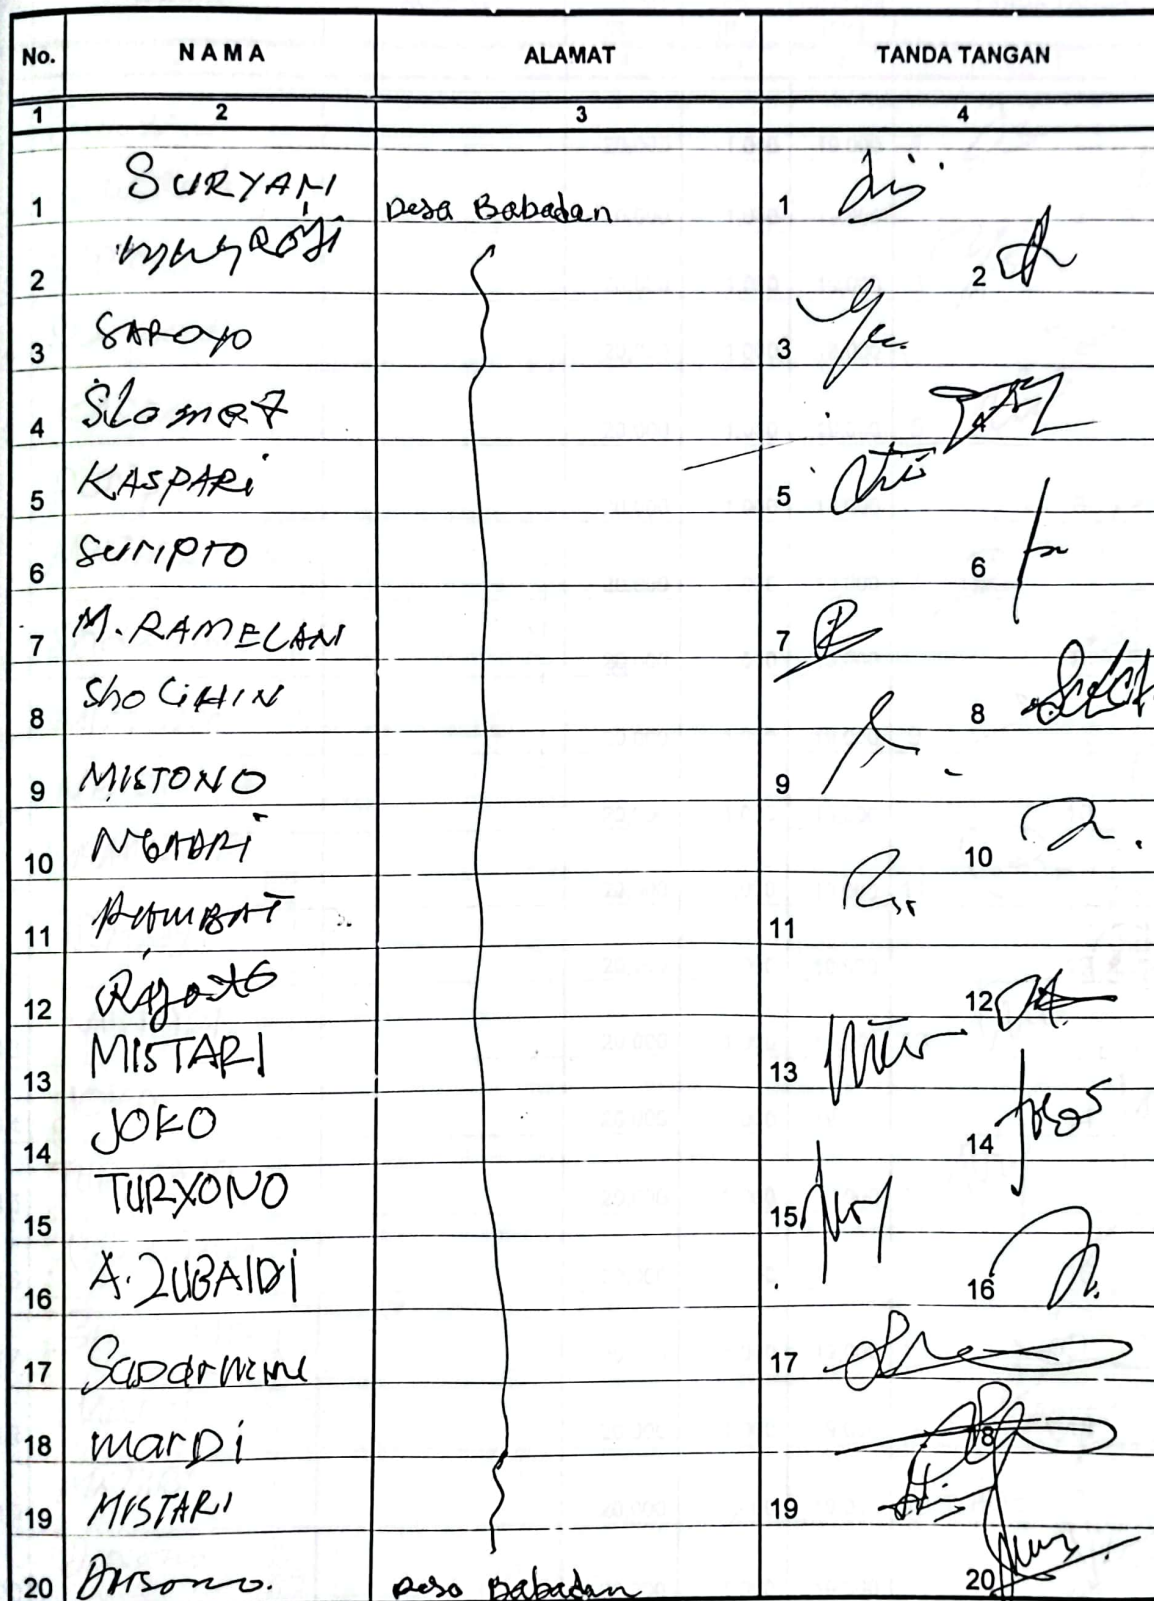 No. NAMA ALAMAT TANDA TANGAN
1 2 3 4
1 SURYANI Desa Babadan 1
2 2
3 SAROYO 3
4 Slamet 4
5 KASPARi 5
6 SURIPTO 6
7 M. RAMELAN 7
8 ShoLiHIN 8
9 MISTONO 9
10 10
11 11
12 12
13 MISTARI 13
14 JOKO 14
15 TURYONO 15
16 A. ZUBAIDi 16
17 17
18 marDi 18
19 MISTARI 19
20 Desa Babadan 20